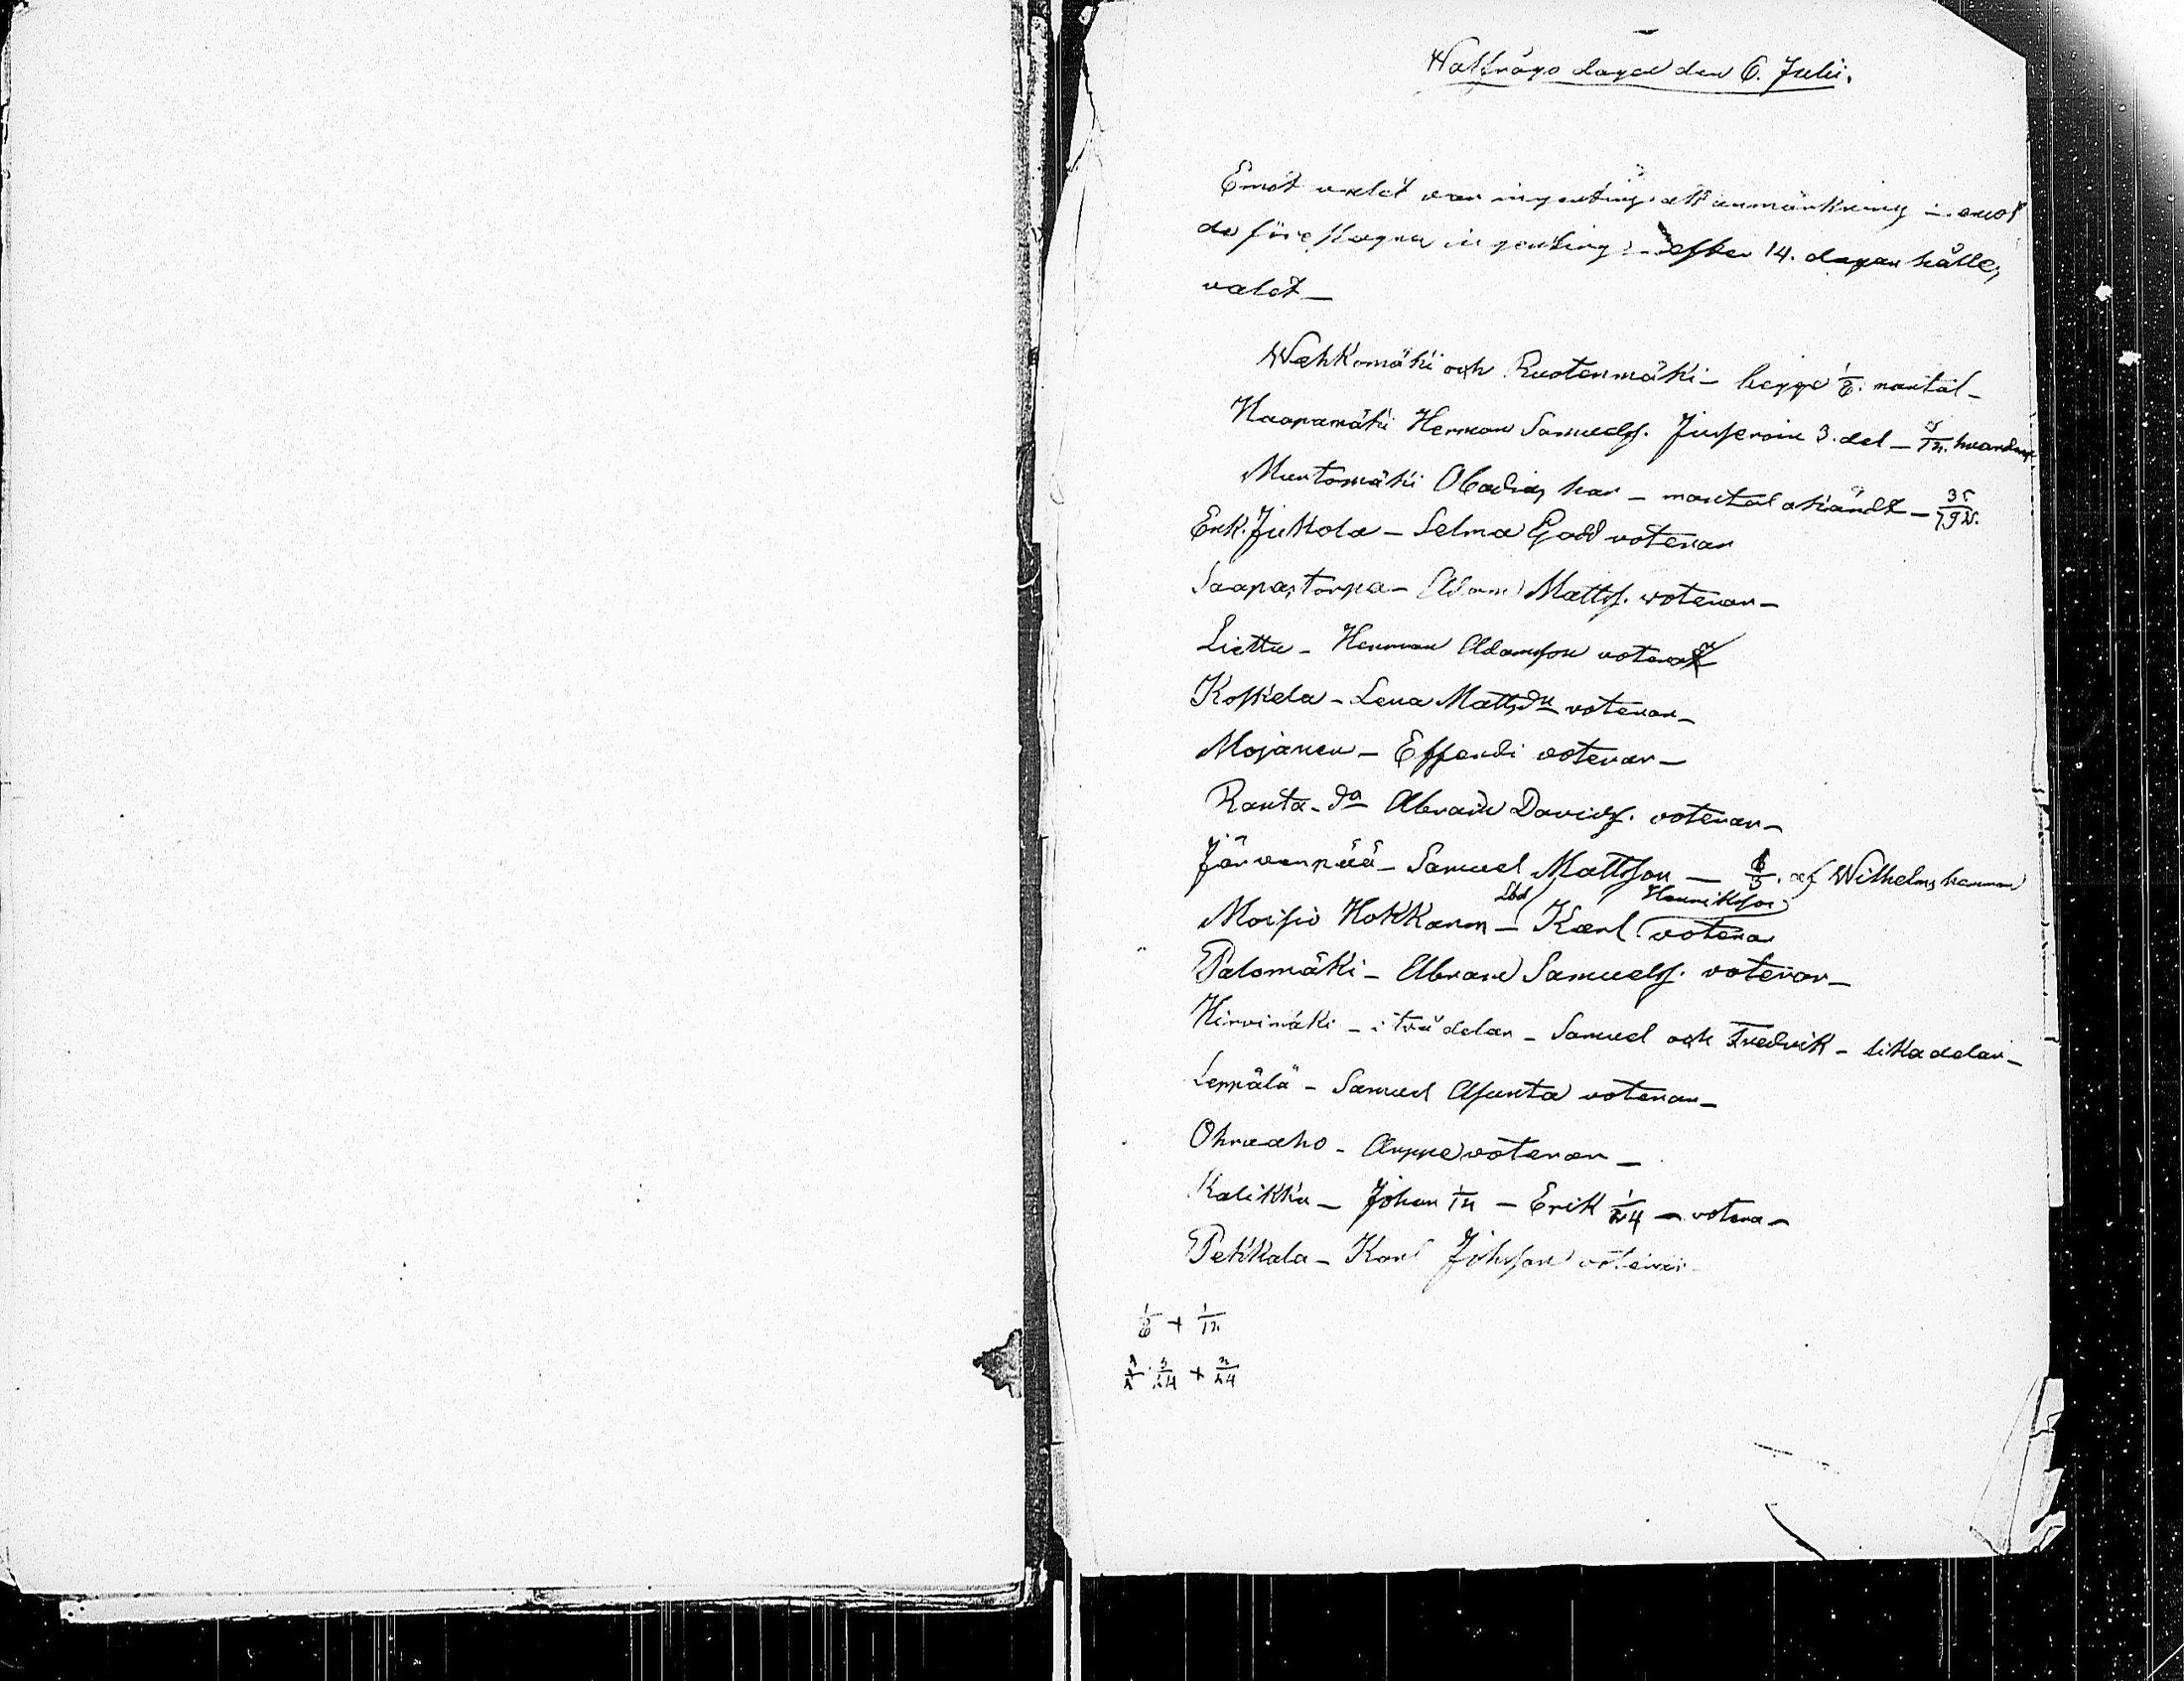 Walfrågo dagen den 6. Julii.
Emot valet var ingenting att anmärkning - emot
de föreslagna ingenting - efter 14. dagar hålles
valet -
Wehkomäki och Ruotenmäki - begge 1/6. mantal -
Haapamäki Herman Samuelss. Jusseroin 3. del - 1/12. hvardera
Muntomäki Obadias har - mantal okändt - 35/192.
Erk. Jukola - Selma Gadd voterar
Saapastorpa - Adam Matts. voterar -
Liettu - Herman Adamsson voterar
Koskela - Lena Mattsdr voterar -
Mojanen - Effendi voterar -
Ranta - da Abram Davids. voterar -
Järvenpää - Samuel Mattsson - /3. af Wilhelms hemman
Moisio Hokkanen - Karl Henriksson votera
Palomäki - Abram Samuels. voterar -
Hirvimäki - i två delar - Samuel och Fredrik - lika delar -
Leppälä - Samuel Asunta voterar -
Ohraaho - Arppe voterar -
Kalikka - Johan 1/12 - Erik 1/24 - votera -
Pekkala - Karl Johsson voterar -
1/6 + 1/12
3/24 + 2/24